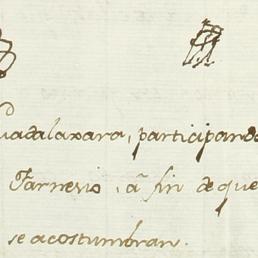 Guadalaxara, participando
Farnesio, â fin de que
se acostumbran.